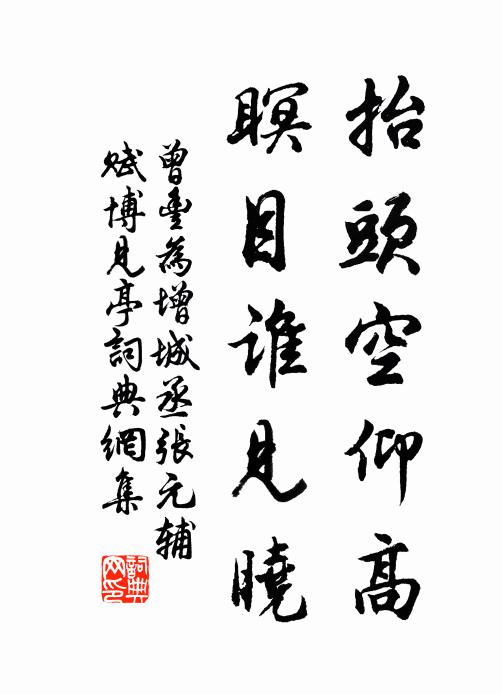 抬頭空仰高
瞑目誰見曉
曾豐為增城丞張元輔
賦博見亭詞典網集
詞典
网印